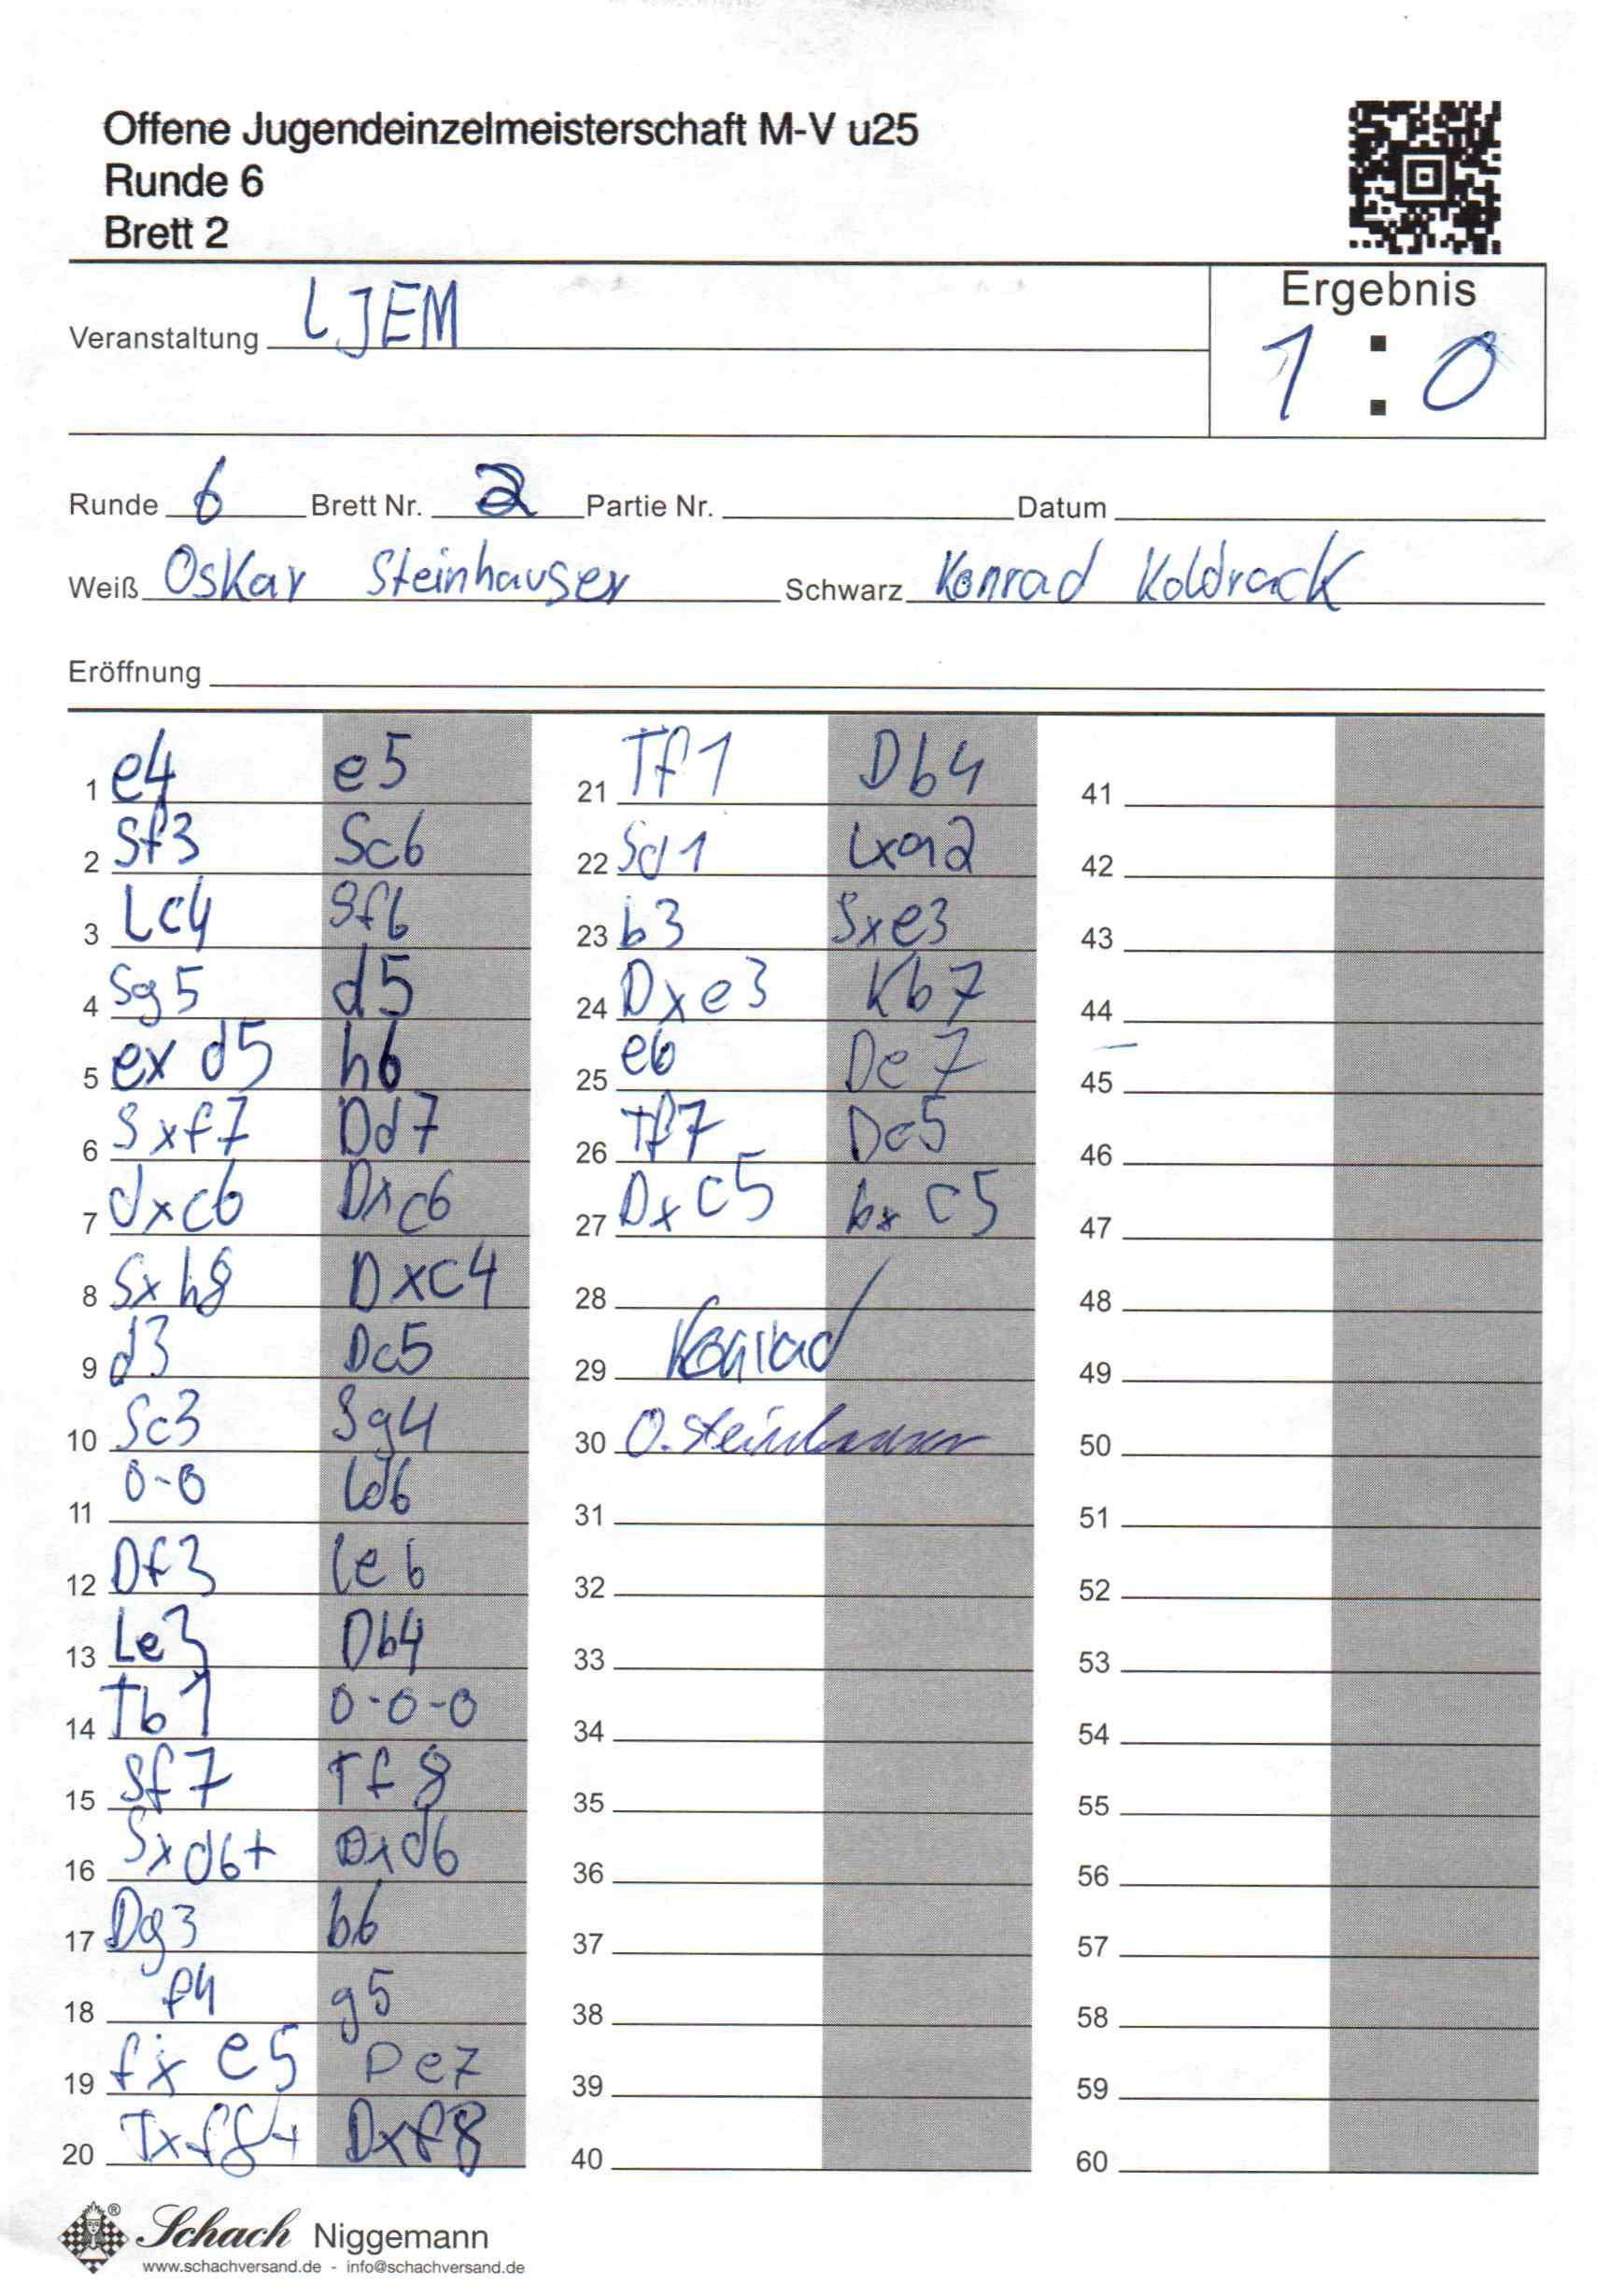 Offene Jugendeinzelmeisterschaft M-V u25
Runde 6
Brett 2
Ergebnis
1 : 0
Veranstaltung LJEM
Runde 6 Brett Nr. 2 Partie Nr. Datum
Weiß Oskar Steinhauser Schwarz Konrad Koldrack
Eröffnung
1 e4 e5
2 Sf3 Sc6
3 Lc4 Sf6
4 Sg5 d5
5 exd5 h6
6 Sxf7 Dd7
7 dxc6 Dxc6
8 Sxh8 Dxc4
9 d3 Dc5
10 Sc3 Sg4
11 0-0 Ld6
12 Df3 Le6
13 Le3 Db4
14 Tb1 0-0-0
15 Sf7 Tf8
16 Sxd6+ Dxd6
17 Dg3 b6
18 f4 g5
19 fxe5 De7
20 Txf8+ Dxf8
21 Tf1 Db4
22 Sd1 Lxa2
23 b3 Sxe3
24 Dxe3 Kb7
25 e6 De7
26 Tf7 Dc5
27 Dxc5 bxc5
28
29 Konrad
30 O. Steinhauser
31
32
33
34
35
36
37
38
39
40
41
42
43
44
45
46
47
48
49
50
51
52
53
54
55
56
57
58
59
60
Schach Niggemann
www.schachversand.de - info@schachversand.de